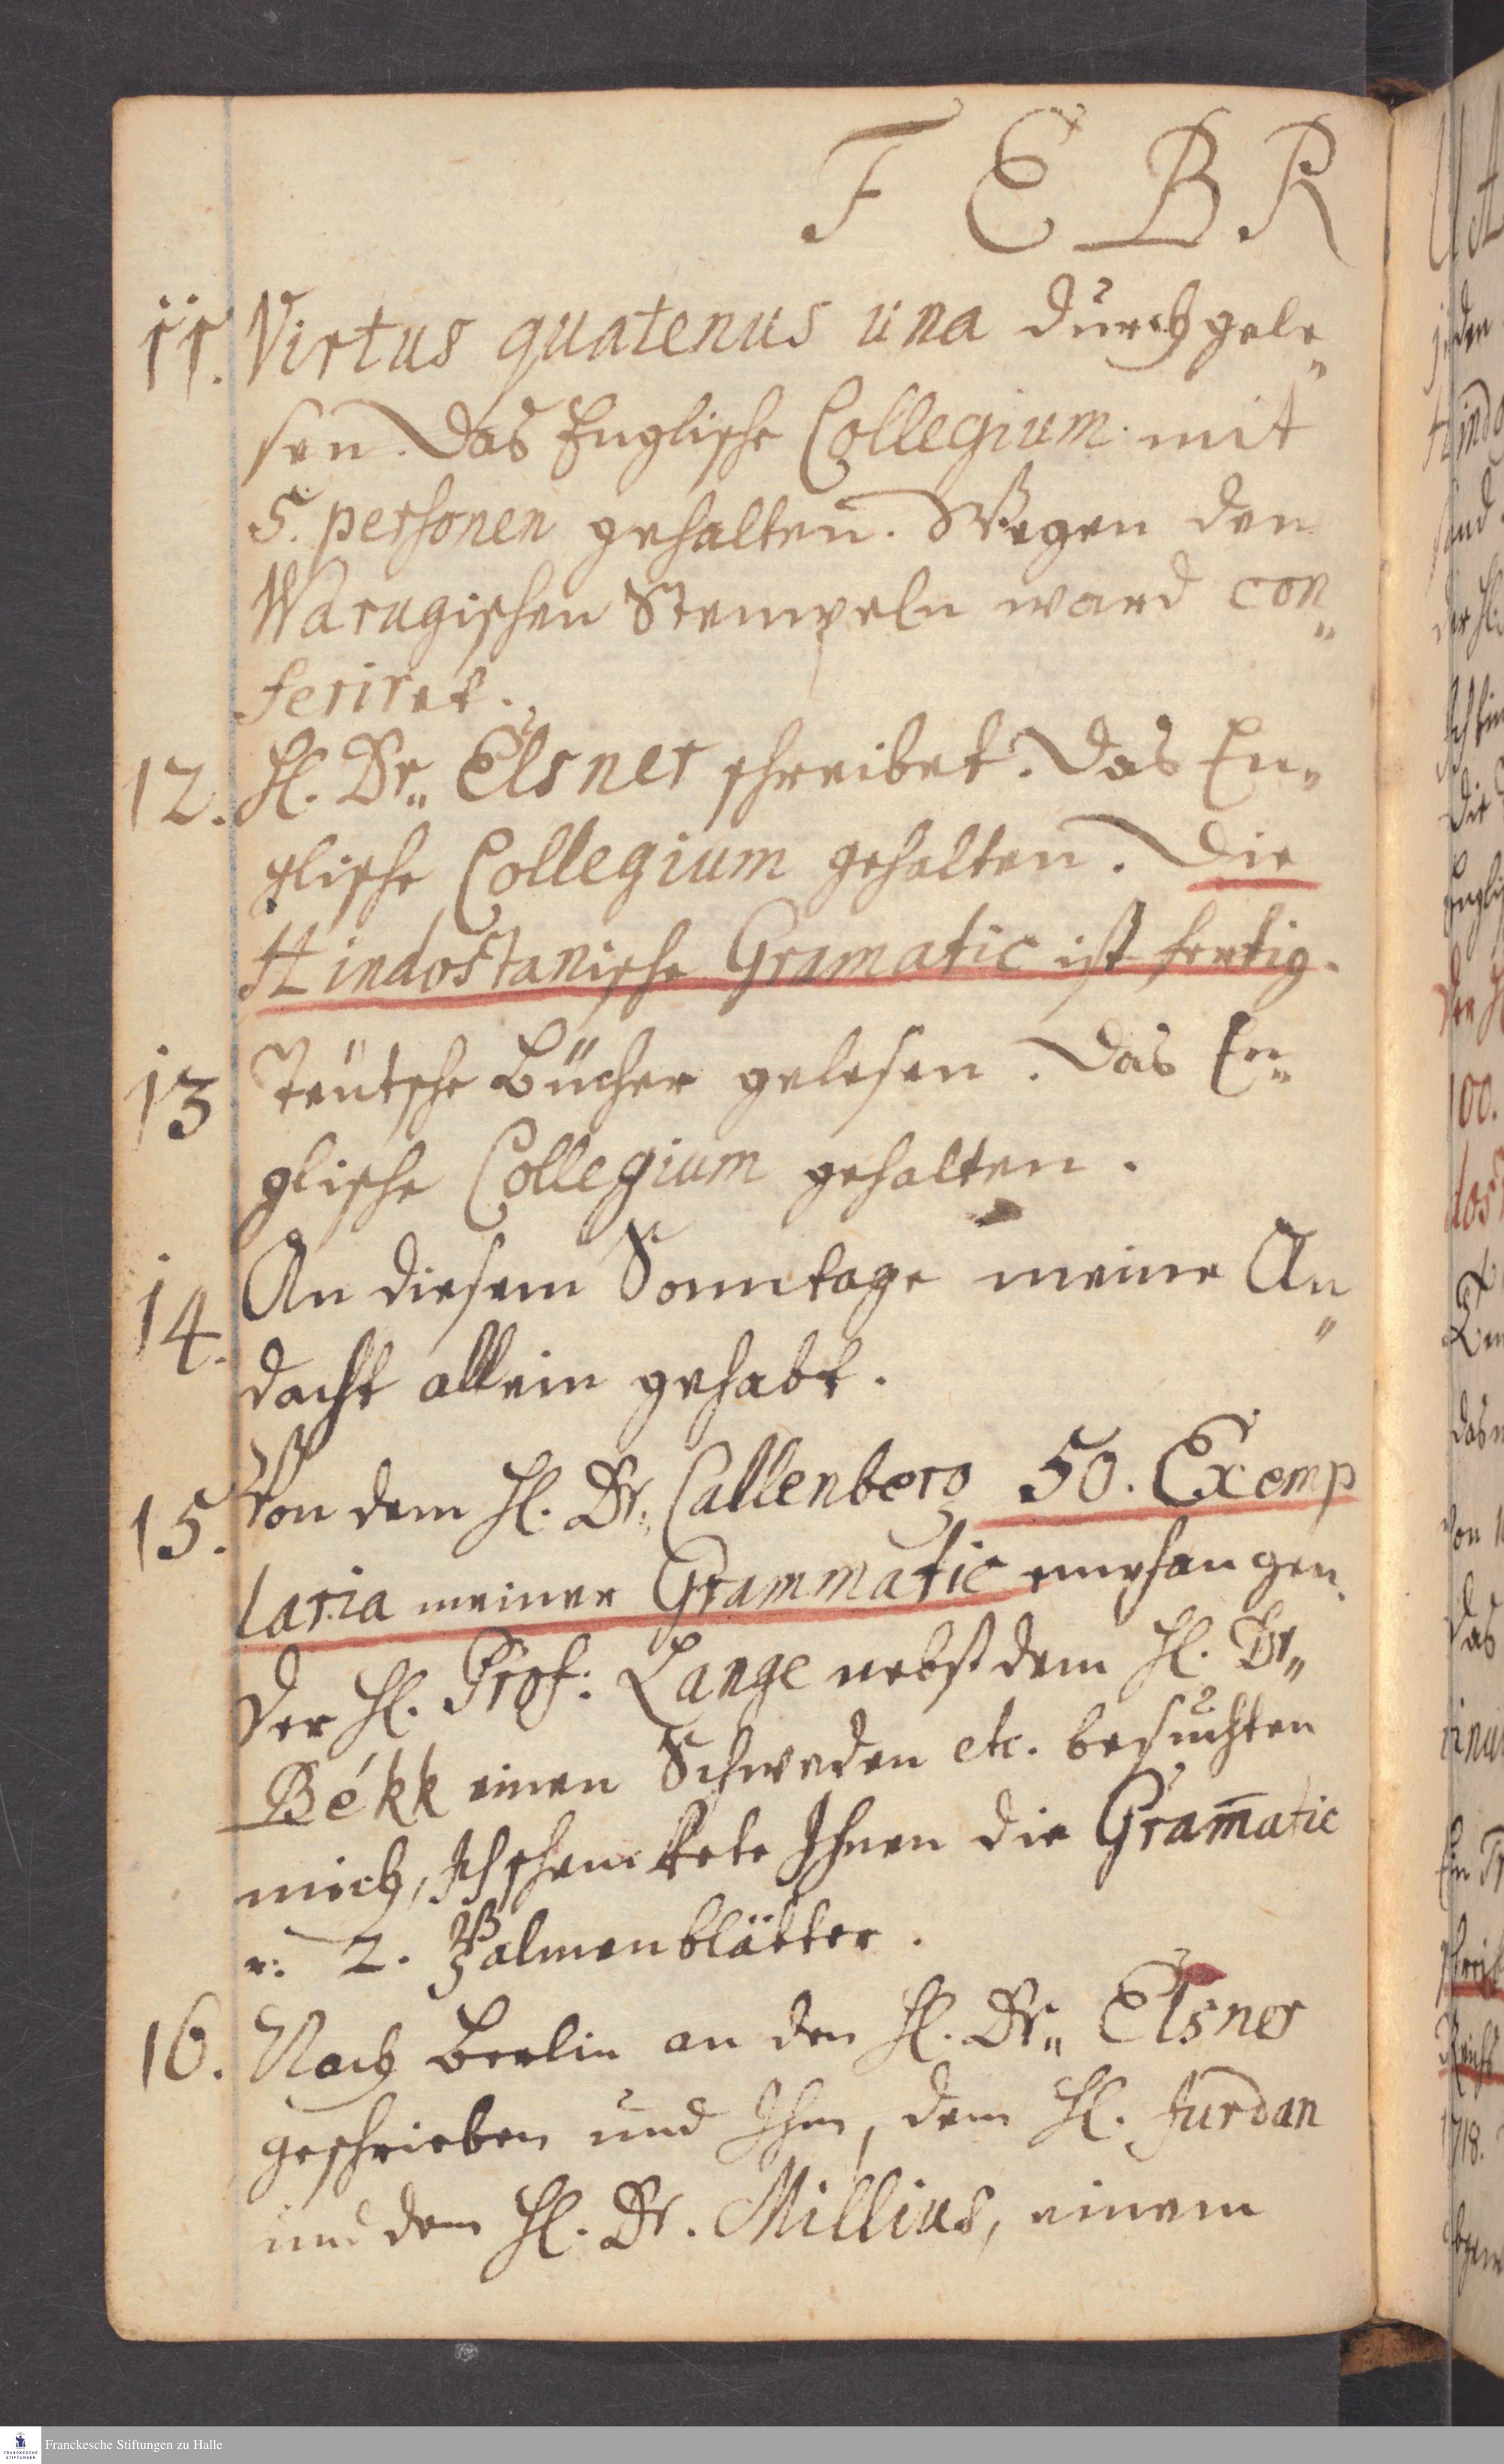 FEBR
11. Virtus quatenus una durchgele„
sen. Das Englische Collegium mit
5. personen gehalten. Wegen den
Warugischen Stempeln ward con„
feriret.
12. H. Dr„ Elsner schreibet. Das En„
glische Collegium gehalten. Die
Hindostanische Gramatic ist fertig.
13 Teütsche Bücher gelesen. Das En„
glische Collegium gehalten.
14. An diesem Sonntage meine An„
dacht allein gehabt.
15. Von dem H. Dr. Callenberg 50. Exemp
laria meiner Grammatic empfangen.
Der H. Prof: Lange nebst dem H. Dr„
Békk einen Schweden etc. besuchten
mich, Ich schenckete Ihnen die Gram̄atic
u. 2. Palmenblätter.
16. Nach Berlin an den H. Dr„ Elsner
geschrieben und Ihm, dem H. Jurdan
und dem H. Dr. Millius, einem
Franckesche Stiftungen zu Halle